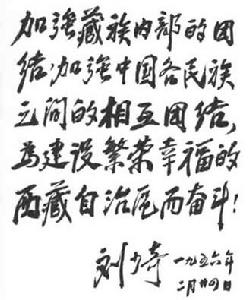 加强藏族内部的团
结，加强中国各民族
之间的相互团结，
为建设繁荣幸福的
西藏自治区而奋斗！
刘少奇 一九五六年
二月廿四日